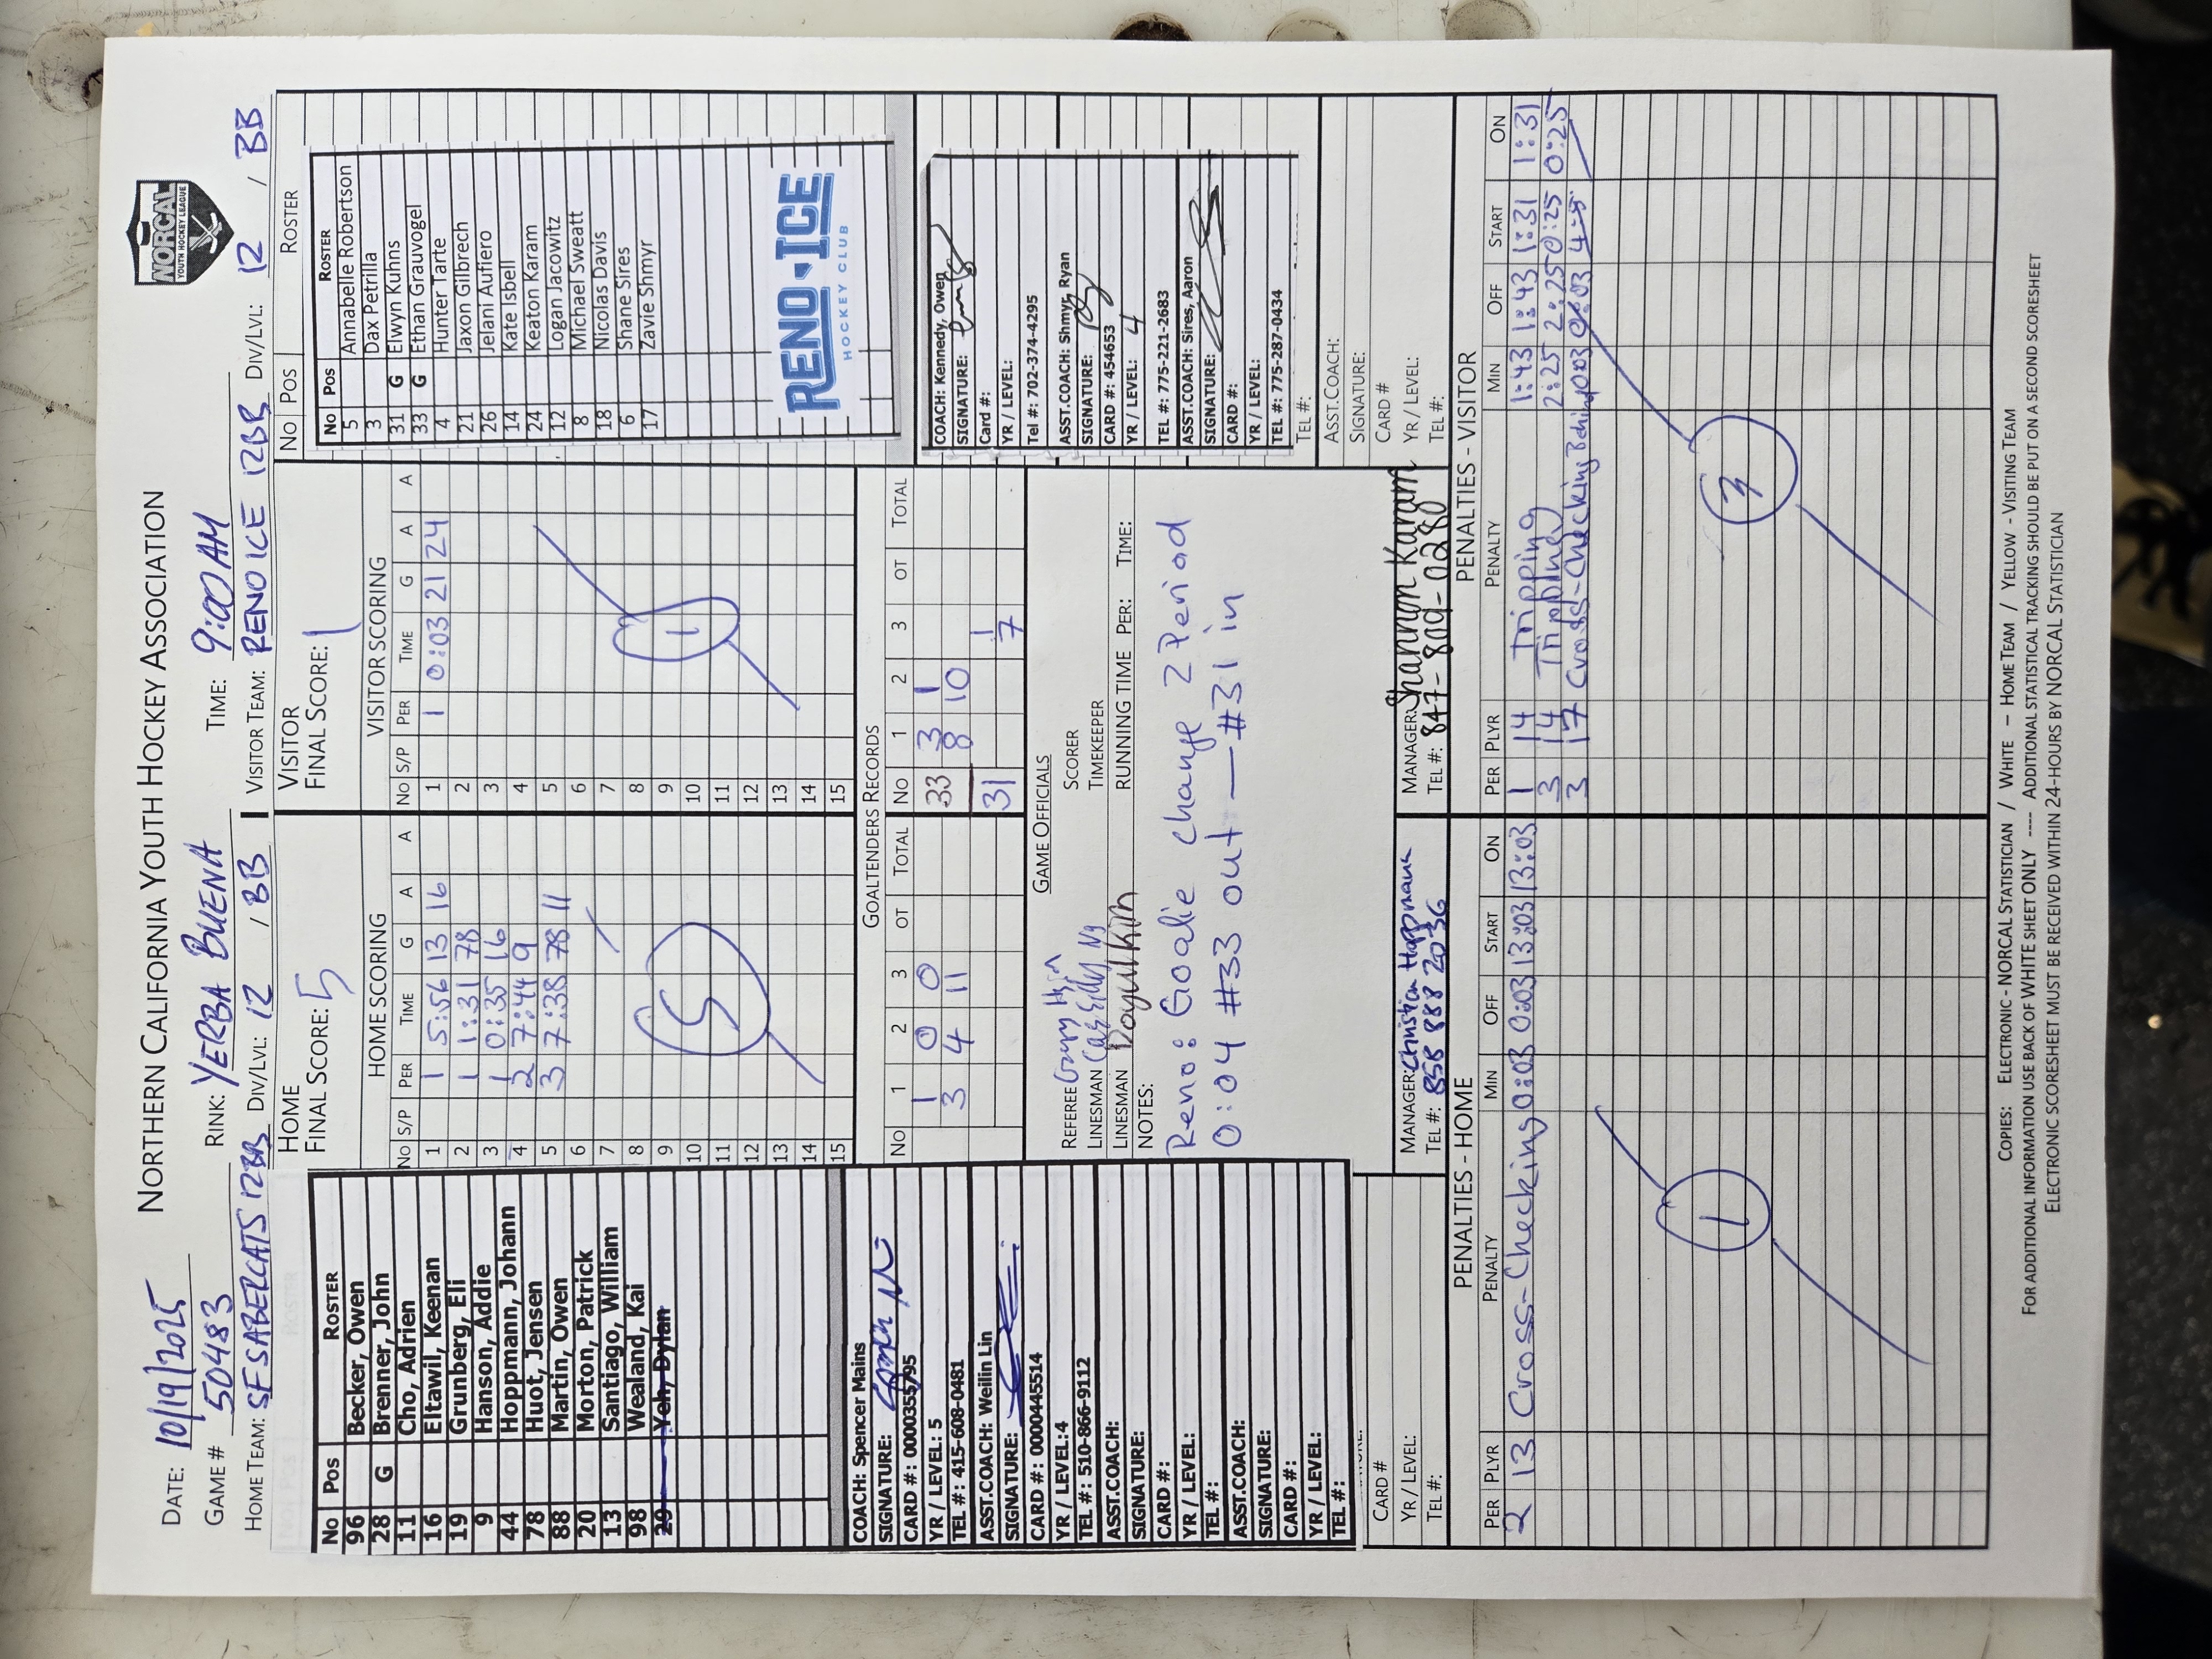 NORTHERN CALIFORNIA YOUTH HOCKEY ASSOCIATION
NORCAL
YOUTH HOCKEY LEAGUE
DATE: 10/19/2025
GAME # 50483 RINK: YERBA BUENA TIME: 9:00 AM
HOME TEAM: SF SABERCATS 12BB DIV/LVL: 12 / BB VISITOR TEAM: RENO ICE 12BB DIV/LVL: 12 / BB
No Pos ROSTER
96 Becker, Owen
28 G Brenner, John
11 Cho, Adrien
16 Eltawil, Keenan
19 Grunberg, Eli
9 Hanson, Addie
44 Hoppmann, Johann
78 Huot, Jensen
88 Martin, Owen
20 Morton, Patrick
13 Santiago, William
98 Wealand, Kai
29 Yeh, Dylan
COACH: Spencer Mains
SIGNATURE:
CARD #: 0000355795
YR / LEVEL: 5
TEL #: 415-608-0481
ASST.COACH: Weilin Lin
SIGNATURE:
CARD #: 0000445514
YR / LEVEL:4
TEL #: 510-866-9112
ASST.COACH:
SIGNATURE:
CARD #:
YR / LEVEL:
TEL #:
ASST.COACH:
SIGNATURE:
CARD #:
YR / LEVEL:
TEL #:
CARD #
YR / LEVEL:
TEL #:
HOME
FINAL SCORE: 5
HOME SCORING
No S/P PER TIME G A A
1 1 5:56 13 16
2 1 1:31 78
3 1 0:35 16
4 2 7:44 9
5 3 7:38 78 11
6
7
8
9
10
11
12
13
14
15
5
VISITOR
FINAL SCORE: 1
VISITOR SCORING
No S/P PER TIME G A A
1 1 0:03 21 24
2
3
4
5
6
7
8
9
10
11
12
13
14
15
1
GOALTENDERS RECORDS
No 1 2 3 OT TOTAL No 1 2 3 OT TOTAL
1 0 0 33 3 1
3 4 11 8 10
31 1
7
GAME OFFICIALS
REFEREE SCORER
LINESMAN TIMEKEEPER
LINESMAN RUNNING TIME PER: TIME:
NOTES:
Reno: Goalie change 2 Period
0:04 #33 out — #31 in
MANAGER: Christian Hoppmann
TEL #: 858 888 2036
MANAGER: Shannon Karam
TEL #: 847-809-0280
No Pos ROSTER
No Pos ROSTER
5 Annabelle Robertson
3 Dax Petrilla
31 G Elwyn Kuhns
33 G Ethan Grauvogel
4 Hunter Tarte
21 Jaxon Gilbrech
26 Jelani Aufiero
14 Kate Isbell
24 Keaton Karam
12 Logan Jacowitz
8 Michael Sweatt
18 Nicolas Davis
6 Shane Sires
17 Zavie Shmyr
RENO ICE
HOCKEY CLUB
COACH: Kennedy, Owen
SIGNATURE:
Card #:
YR / LEVEL:
Tel #: 702-374-4295
ASST.COACH: Shmyr, Ryan
SIGNATURE:
CARD #: 454653
YR / LEVEL: 4
TEL #: 775-221-2683
ASST.COACH: Sires, Aaron
SIGNATURE:
CARD #:
YR / LEVEL:
TEL #: 775-287-0434
TEL #:
ASST.COACH:
SIGNATURE:
CARD #
YR / LEVEL:
TEL #:
PENALTIES - HOME
PER PLYR PENALTY MIN OFF START ON
2 13 Cross-Checking 0:03 0:03 13:03 13:03
1
PENALTIES - VISITOR
PER PLYR PENALTY MIN OFF START ON
1 14 Tripping 1:43 1:43 1:31 1:31
3 14 Tripping 2:25 2:25 0:25 0:25
3 17 Cross-Checking Behind 0:03 0:03
3
COPIES: ELECTRONIC - NORCAL STATISTICIAN / WHITE – HOME TEAM / YELLOW - VISITING TEAM
FOR ADDITIONAL INFORMATION USE BACK OF WHITE SHEET ONLY ---- ADDITIONAL STATISTICAL TRACKING SHOULD BE PUT ON A SECOND SCORESHEET
ELECTRONIC SCORESHEET MUST BE RECEIVED WITHIN 24-HOURS BY NORCAL STATISTICIAN